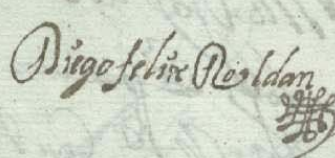 Diego felix Roldan